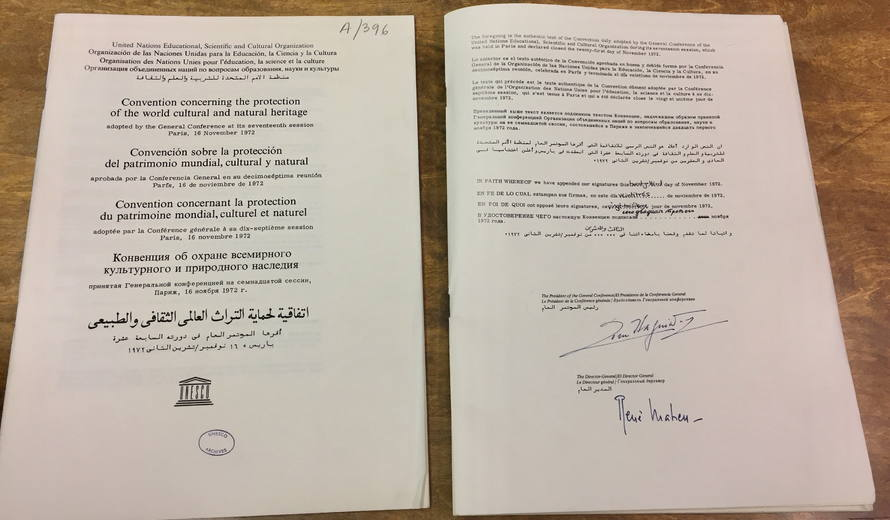 A/396
United Nations Educational, Scientific and Cultural Organization
Organización de las Naciones Unidas para la Educación, la Ciencia y la Cultura
Organisation des Nations Unies pour l'éducation, la science et la culture
Организация объединенных наций по вопросам образования, науки и культуры
منظمة الامم المتحدة للتربية والعلم والثقافة
Convention concerning the protection
of the world cultural and natural heritage
adopted by the General Conference at its seventeenth session
Paris, 16 November 1972
Convención sobre la protección
del patrimonio mundial, cultural y natural
aprobada por la Conferencia General en su decimoséptima reunión
París, 16 de noviembre de 1972
Convention concernant la protection
du patrimoine mondial, culturel et naturel
adoptée par la Conférence générale à sa dix-septième session
Paris, 16 novembre 1972
Конвенция об охране всемирного
культурного и природного наследия
принятая Генеральной конференцией на семнадцатой сессии,
Париж, 16 ноября 1972 г.
اتفاقية لحماية التراث العالمى الثقافى والطبيعى
أقرها المؤتمر العام فى دورته السابعة عشرة
باريس، ١٦ نوفمبر/تشرين الثانى ١٩٧٢
UNESCO
UNESCO
ARCHIVES
The foregoing is the authentic text of the Convention duly adopted by the General Conference of the
United Nations Educational, Scientific and Cultural Organization during its seventeenth session, which
was held in Paris and declared closed the twenty-first day of November 1972.
Lo anterior es el texto auténtico de la Convención aprobada en buena y debida forma por la Conferencia
General de la Organización de las Naciones Unidas para la Educación, la Ciencia y la Cultura, en su
decimoséptima reunión, celebrada en París y terminada el día veintiuno de noviembre de 1972.
Le texte qui précède est le texte authentique de la Convention dûment adoptée par la Conférence
générale de l'Organisation des Nations Unies pour l'éducation, la science et la culture à sa dix-
septième session, qui s'est tenue à Paris et qui a été déclarée close le vingt et unième jour de
novembre 1972.
Приведенный выше текст является подлинным текстом Конвенции, надлежащим образом принятой
Генеральной конференцией Организации объединенных наций по вопросам образования, науки и
культуры на ее семнадцатой сессии, состоявшейся в Париже и закончившейся двадцать первого
ноября 1972 года.
ان النص الوارد أعلاه هو النص الرسمى للاتفاقية التى أقرها المؤتمر العام لمنظمة الأمم المتحدة
للتربية والعلم والثقافة فى دورته السابعة عشرة التى انعقدت فى باريس وأعلن اختتامها فى
الحادى والعشرين من نوفمبر/تشرين الثانى ١٩٧٢
IN FAITH WHEREOF we have appended our signatures this day of November 1972.
EN FE DE LO CUAL estampan sus firmas, en este día veintitrés de noviembre de 1972.
EN FOI DE QUOI ont apposé leurs signatures, ce jour de novembre 1972,
В УДОСТОВЕРЕНИЕ ЧЕГО настоящую Конвенцию подписали ноября
1972 года.
الثالث والعشرين
واثباتا لما تقدم وقعنا بامضاءاتنا فى من نوفمبر/تشرين الثانى ١٩٧٢
The President of the General Conference/El Presidente de la Conferencia General
Le Président de la Conférence générale / Председатель Генеральной конференции
رئيس المؤتمر العام
The Director-General/El Director General
Le Directeur général / Генеральный директор
المدير العام
René Maheu